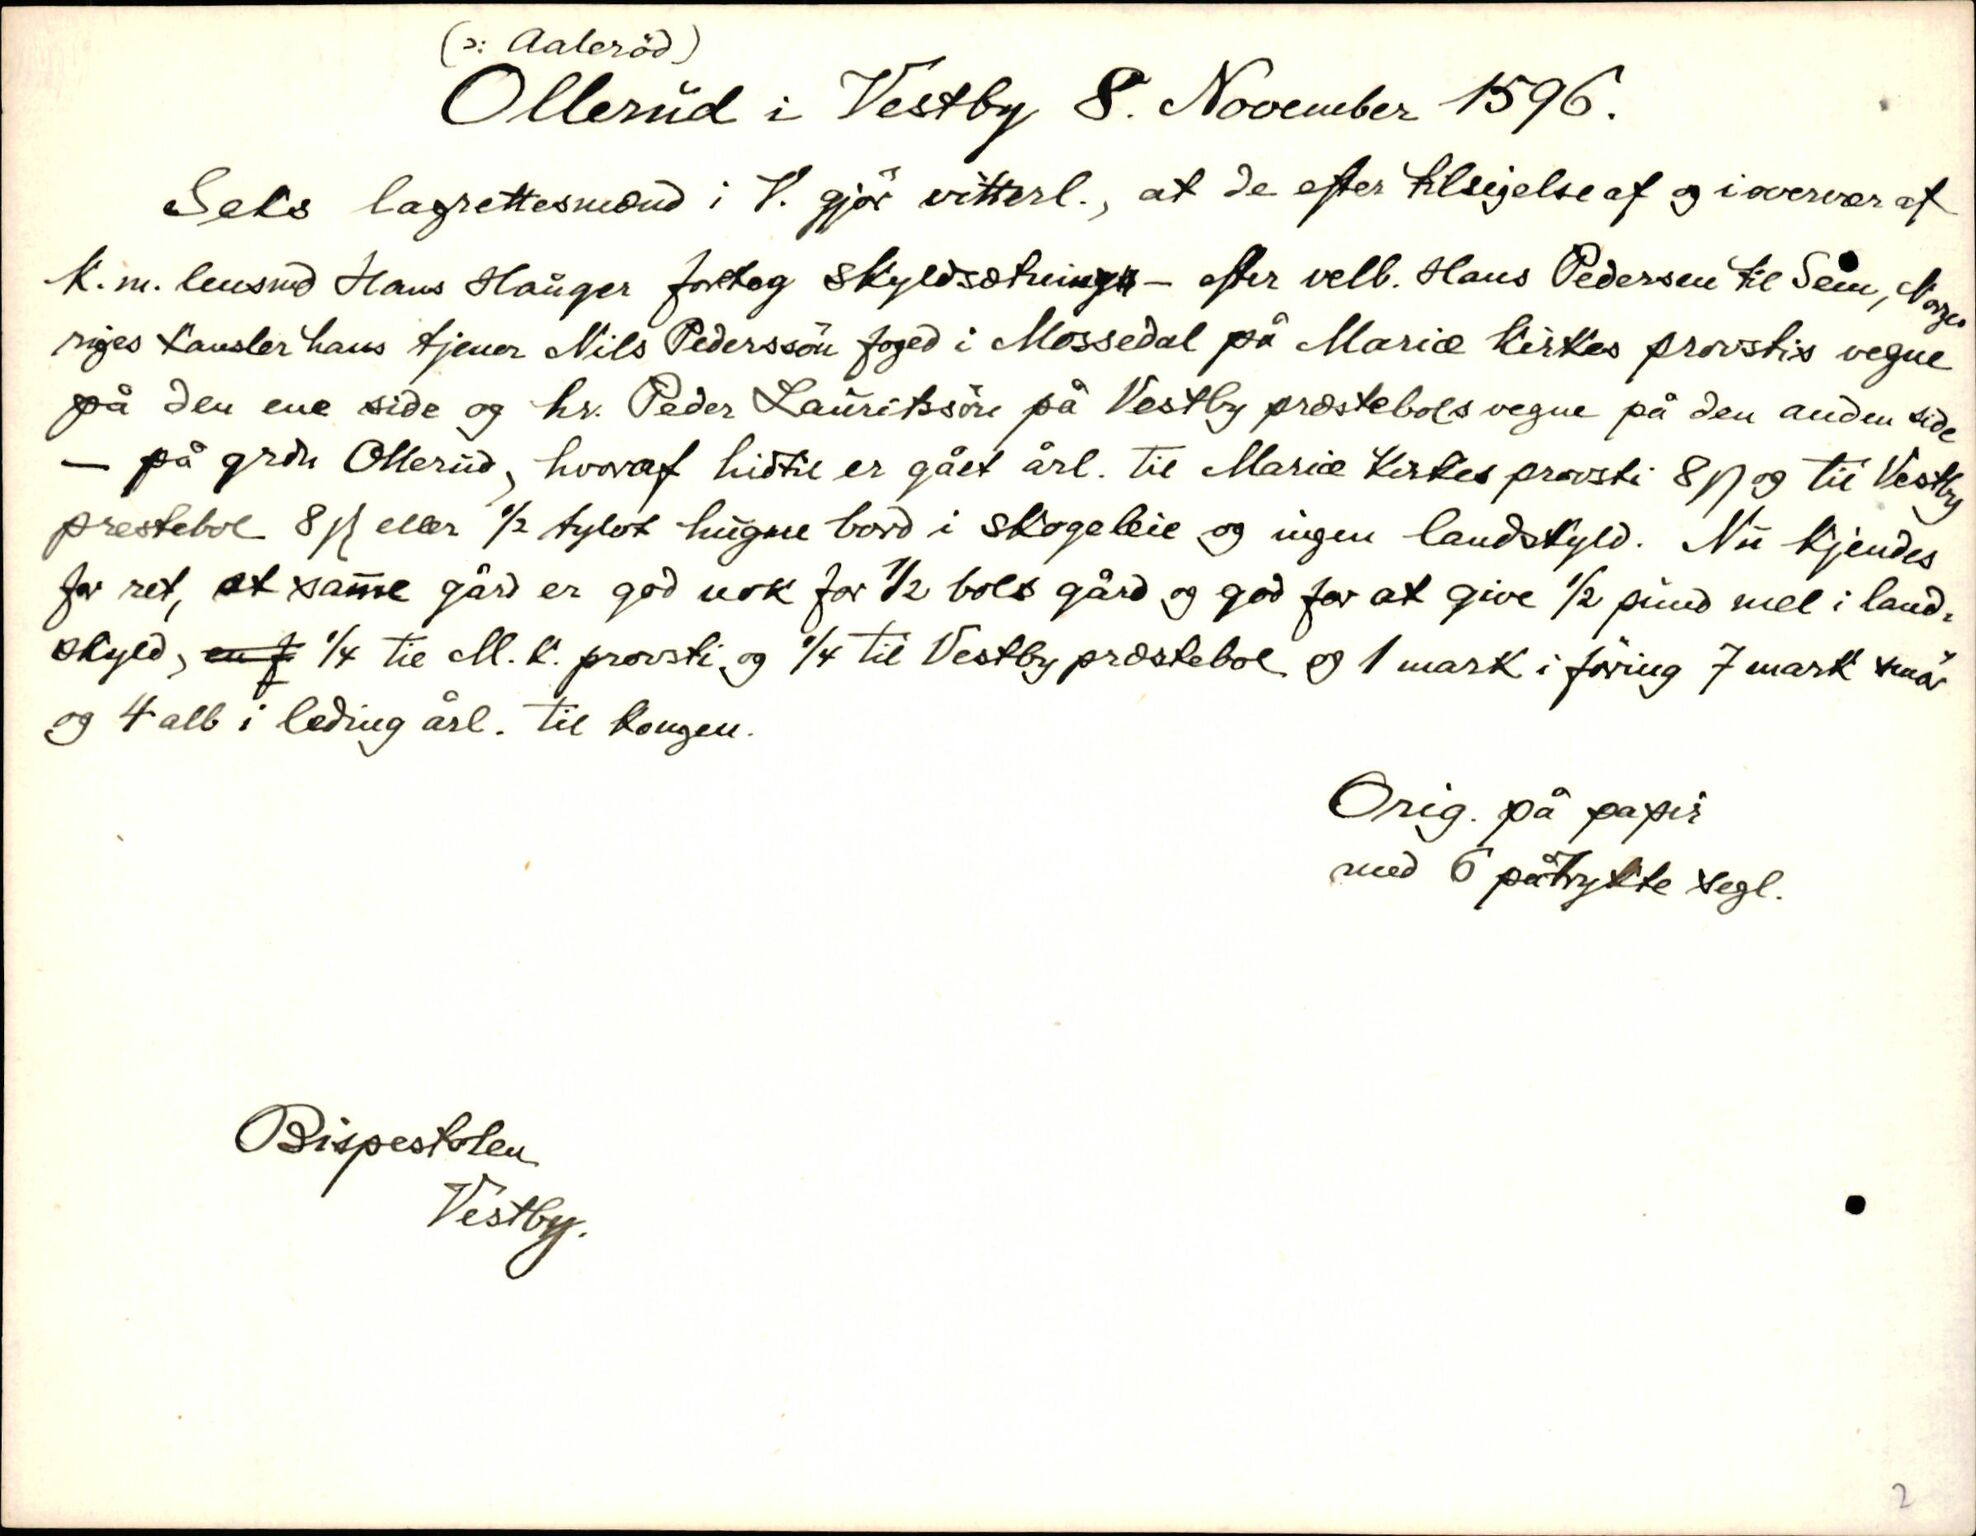 (ɔ: Aaleröd)
Ollerud i Vestby 8. November 1596.
Seks lagrettesmænd i V. gjör vitterl., at de efter tilsigelse af og i overvær af
k. m. lensmd Hans Hauger foretog skyldsætning – efter velb. Hans Pedersen til Sem, Norges
riges kansler hans tjener Nils Pederssön foged i Mossedal på Mariæ kirkes provstis vegne
på den ene side og hr. Peder Lauritssön på Vestby præstebols vegne på den anden side
– på grdn Ollerud, hvoraf hidtil er gået årl. til Mariæ kirkes provsti 8 β og til Vestby
prestebol 8 β eller 1/2 tylvt hugne bord i skogeleie og ingen landskyld. Nu kjendes
for ret, at sam̄e gård er god nok for 1/2 bols gård og god for at give 1/2 pund mel i land-
skyld, en f 1/4 til M. k. provsti og 1/4 til Vestby præstebol og 1 mark i föring 7 mark smör
og 4 alb i leding årl. til kongen.
Orig. på papir
med 6 påtrykte segl.
Bispestolen
Vestby.
2